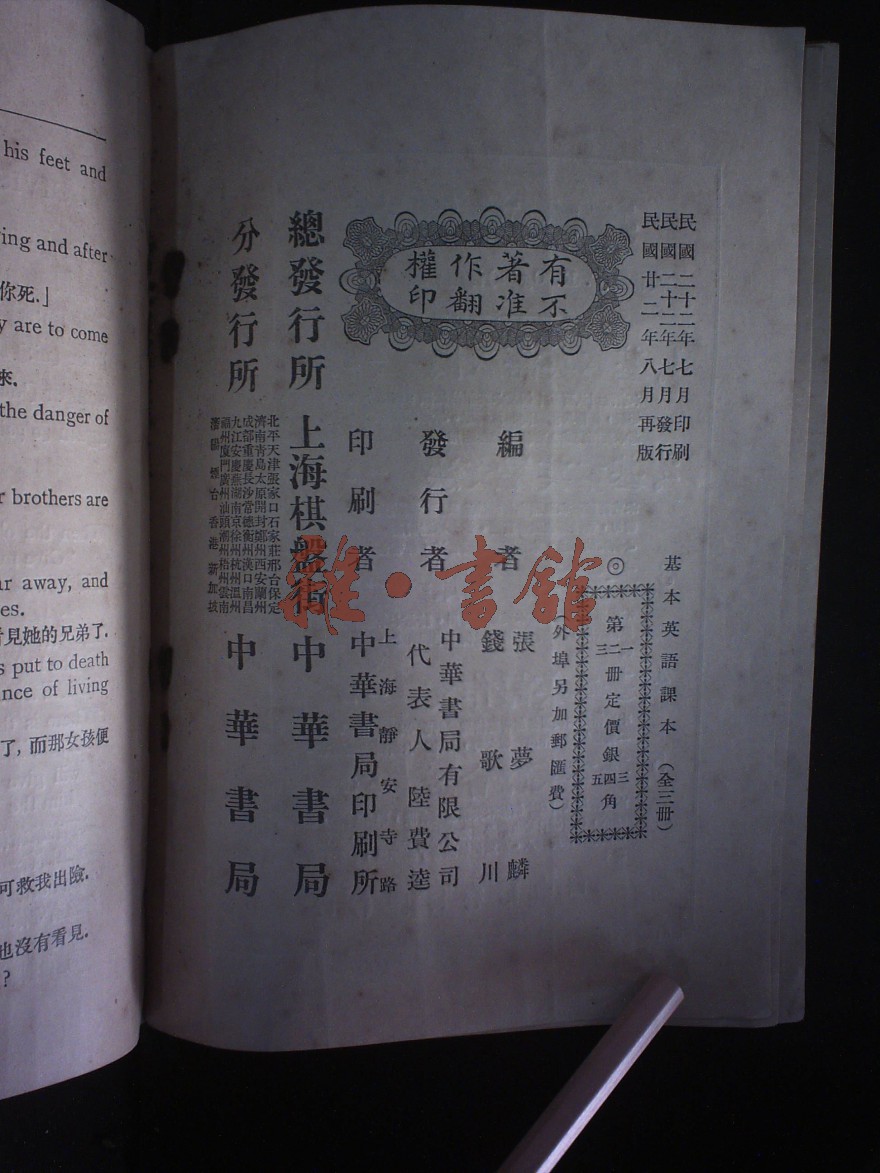 his feet and
ing and after
你死.」
y are to come
來.
the danger of
r brothers are
ar away, and
es.
看見她的兄弟了.
s put to death
nce of living
了, 而那女孩便
可救我出險.
也沒有看見.
?
民國二十二年七月印刷
民國二十二年七月發行
民國廿二年八月再版
基本英語課本(全三冊)
◎
第一二三冊定價銀三四五角
(外埠另加郵匯費)
有著作權
不准翻印
編者
張夢麟
錢歌川
發行者
中華書局有限公司
代表人陸費逵
印刷者
上海靜安寺路
中華書局印刷所
總發行所
上海棋盤街
中華書局
分發行所
北平天津張家口石家莊邢台保定
濟南青島太原開封鄭州西安蘭州
成都重慶長沙常德衡州漢口南昌
九江安慶蕪湖南京徐州杭州溫州
福州廈門廣州汕頭潮州梧州雲南
瀋陽煙台香港新加坡
中華書局
雜·書館